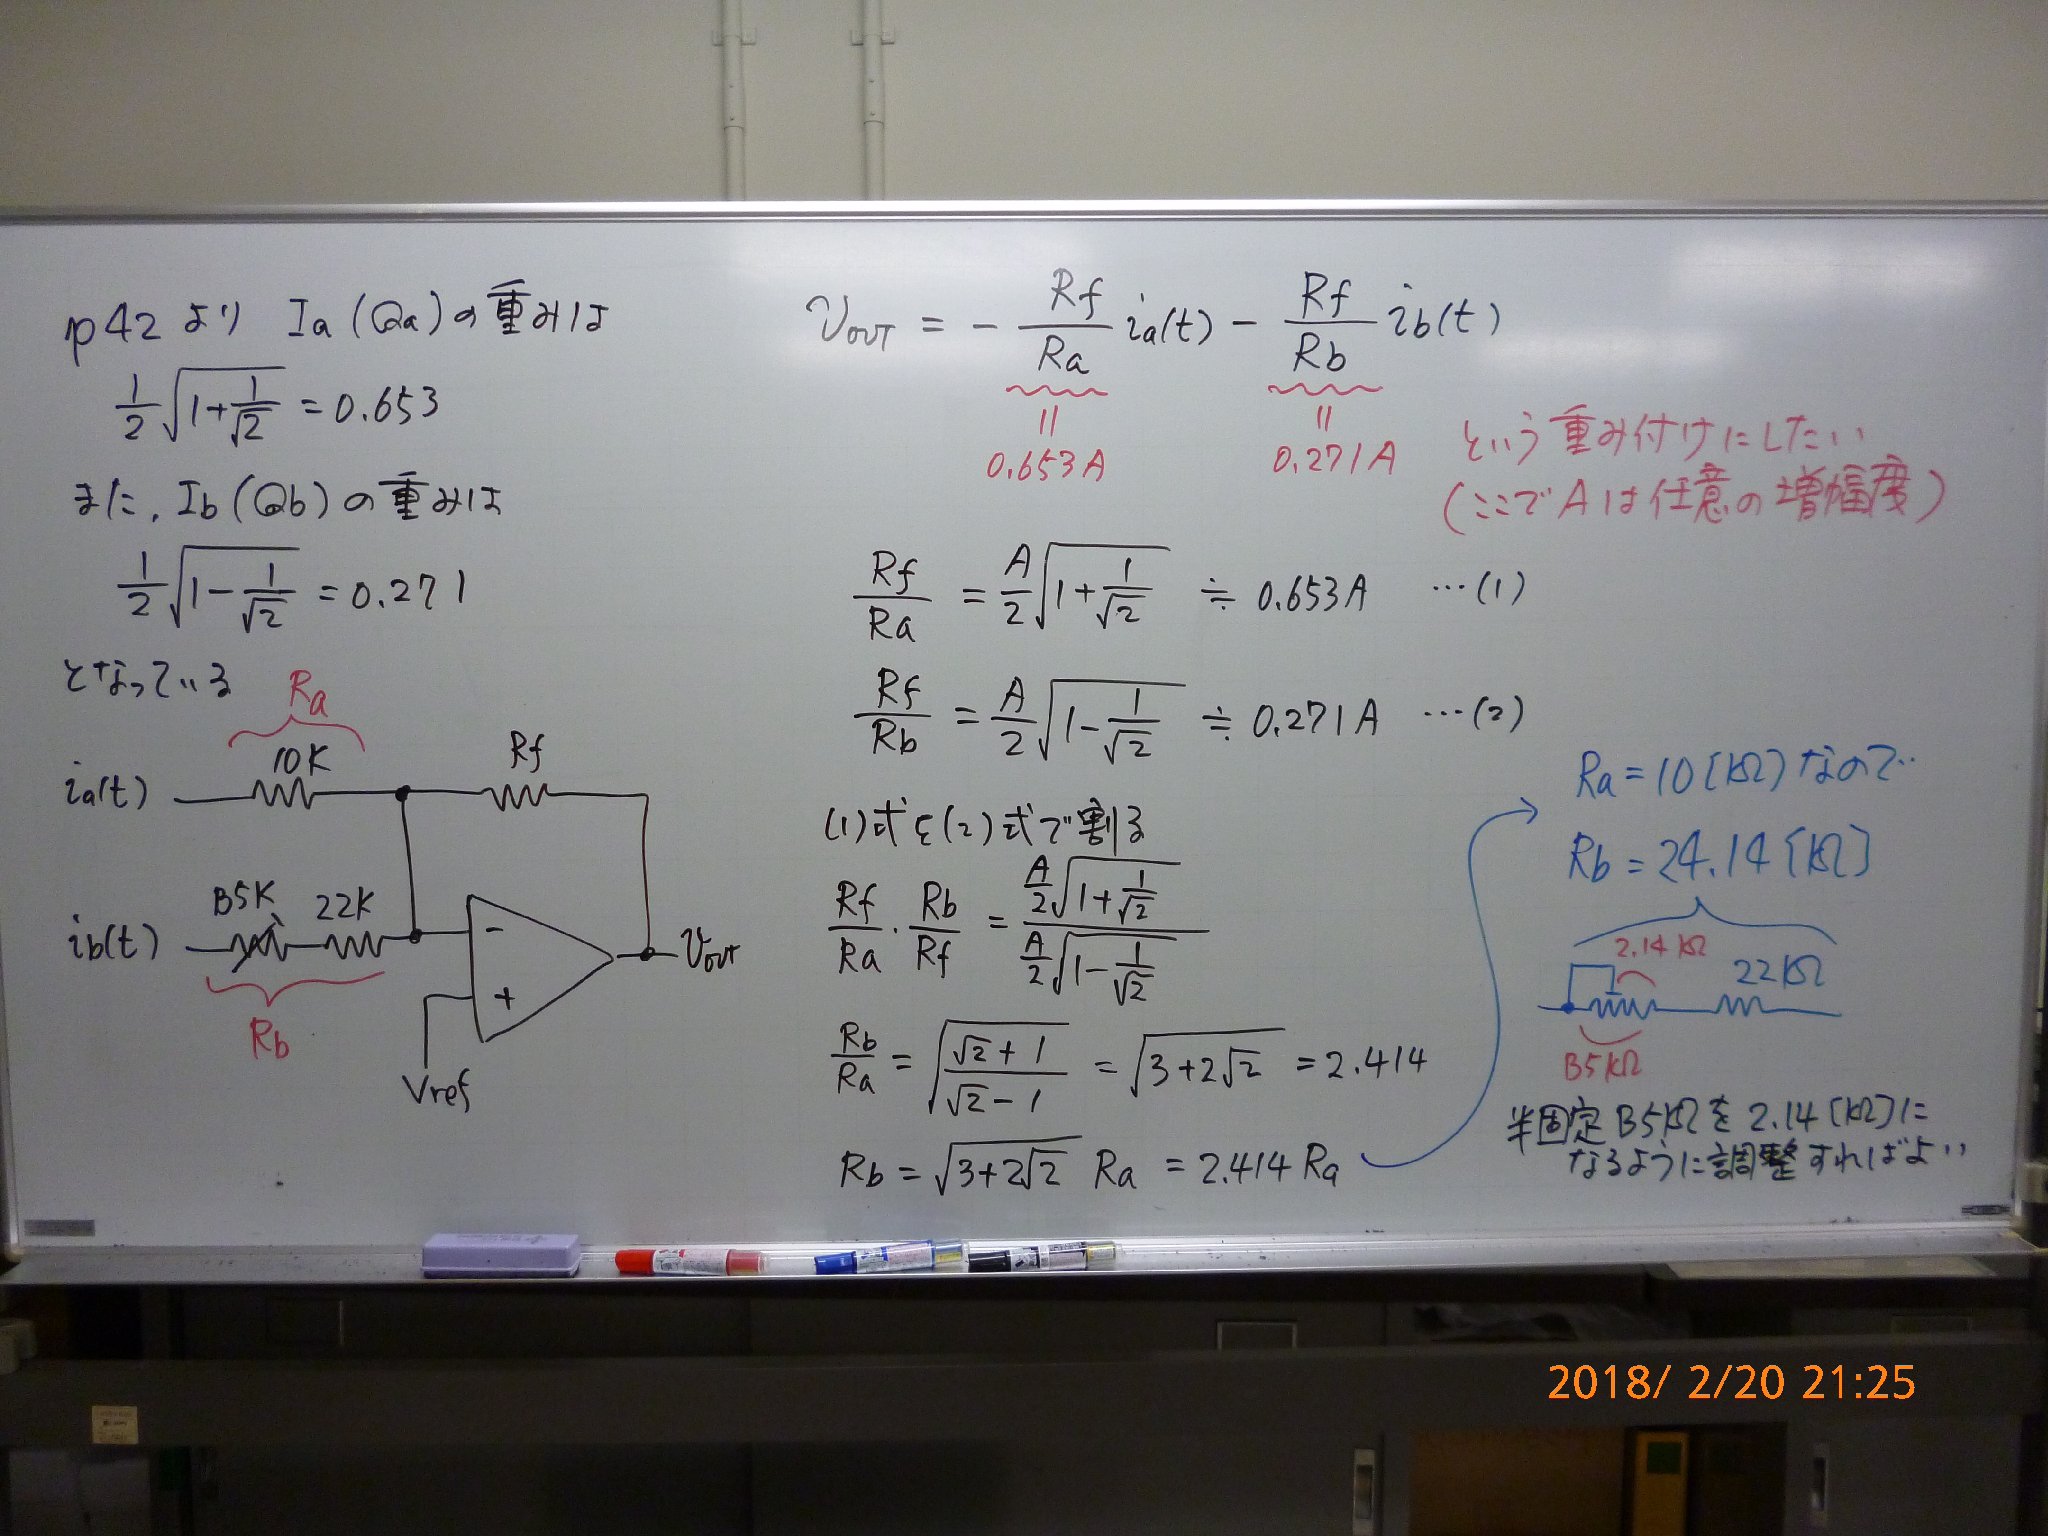 p42より Ia(Qa)の重みは
1/2√(1+1/√2) = 0.653
また、Ib(Qb)の重みは
1/2√(1-1/√2) = 0.271
となっている
Ra
10K
Rf
ia(t)
B5K
22K
ib(t)
-
+
Vout
Rb
Vref
Vout = - Rf/Ra ia(t) - Rf/Rb ib(t)
||
||
0.653A
0.271A
という重み付けにしたい
(ここでAは任意の増幅度)
Rf/Ra = A/2√(1+1/√2) ≒ 0.653A …(1)
Rf/Rb = A/2√(1-1/√2) ≒ 0.271A …(2)
(1)式を(2)式で割る
Rf/Ra・Rb/Rf = (A/2√(1+1/√2))/(A/2√(1-1/√2))
Rb/Ra = √((√2+1)/(√2-1)) = √(3+2√2) = 2.414
Rb = √(3+2√2) Ra = 2.414Ra
Ra = 10[kΩ]なので
Rb = 24.14[kΩ]
2.14kΩ
22kΩ
B5kΩ
半固定B5kΩを2.14[kΩ]に
なるように調整すればよい
2018/ 2/20 21:25